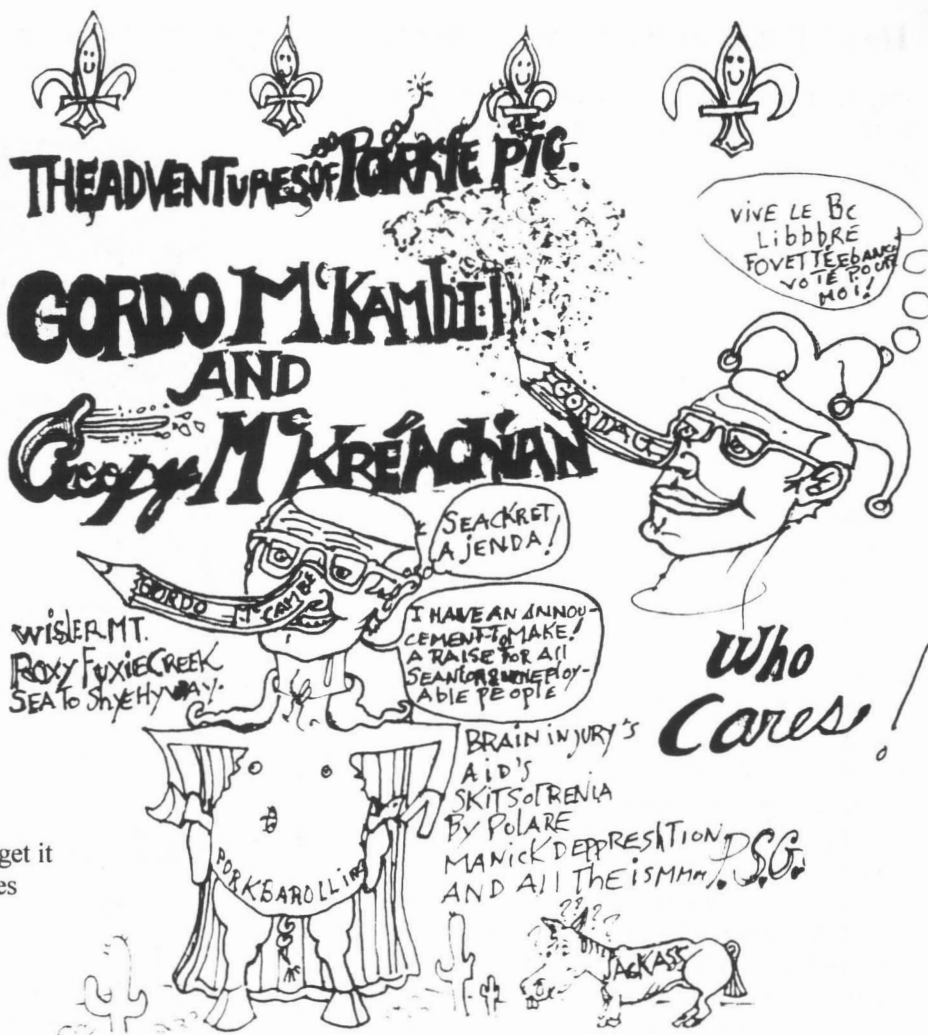 THE ADVENTURES OF PORKIE PIG.
GORDO McKAMBILL
AND
Creepy McKRÉACHIAN
VIVE LE BC
LIBBBRE
FOVETTÉE
VOTE POUR
MOI!
GORDACI
SEACKRET
AJENDA!
GORDO McCAMBE
I HAVE AN ANNOU-
CEMENT TO MAKE!
A RAISE FOR All
SEANIORS UNEMPLOY-
ABLE PEOPLE
WISLER MT.
ROXY FUXIE CREEK
SEA To ShyE HyWAY.
Who
Cares!
BRAIN iNJURY'S
AiD'S
SKiTSOFRENiA
By POLARE
MANICK DEPPRESHTION
AND All ThE iSMMM P.S.G.
PORKBAROLLING
get it
es
JACKASS
??